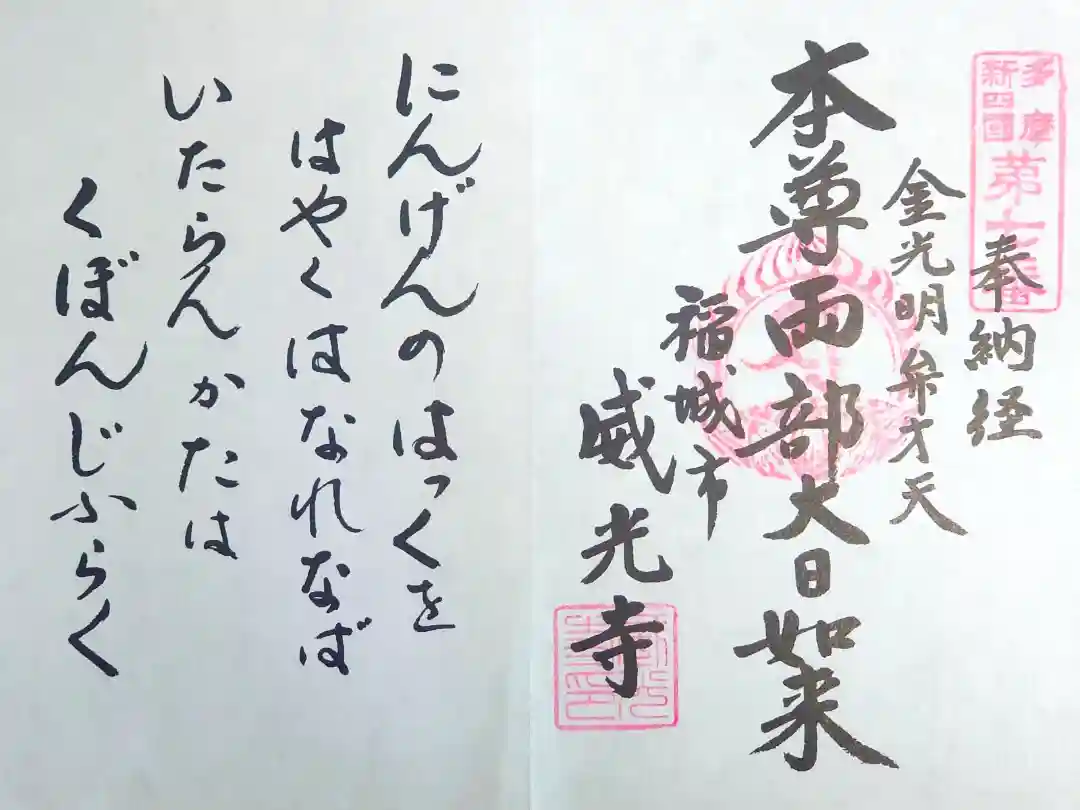 多摩
新四国
第十番
奉納経
金光明弁才天
本尊両部大日如来
稲城市
威光寺
にんげんのはっくを
はやくはなれなば
いたらんかたは
くぼんじふらく